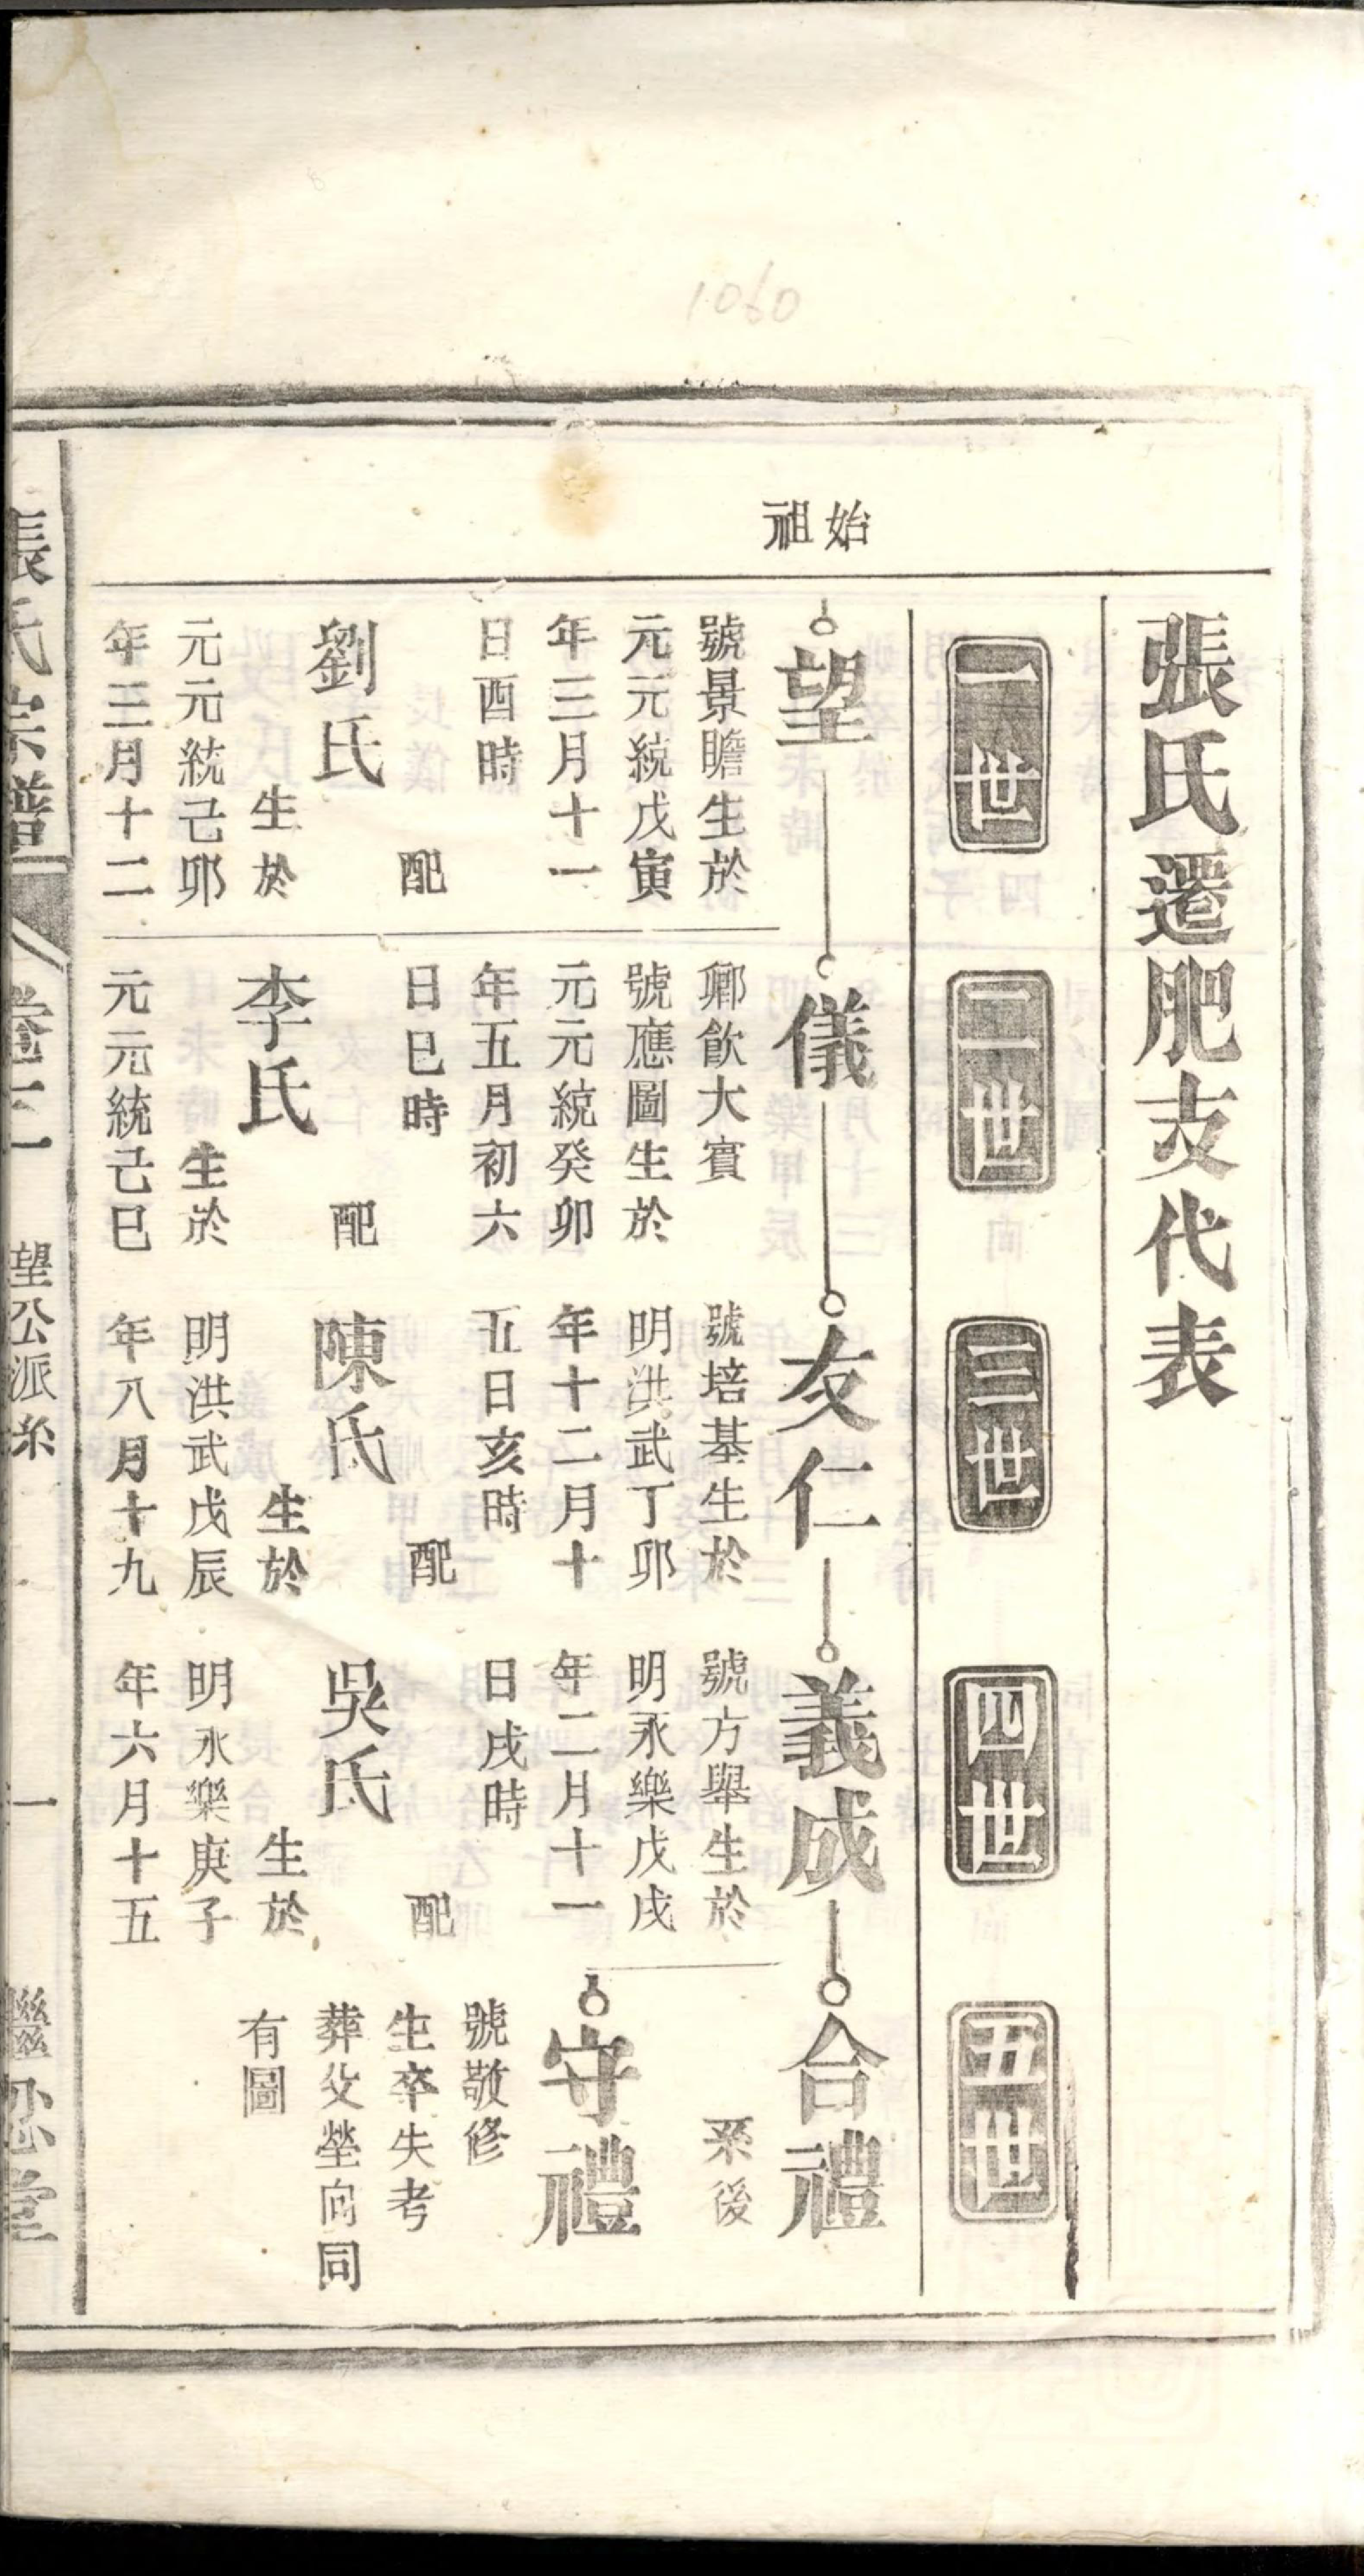 1060
張氏遷肥支代表
一世
二世
三世
四世
五世
始
祖
望
號景瞻生於
元元統戊寅
年三月十一
日酉時
配
劉氏
生於
元元統己卯
年三月十二
儀
鄉飲大賓
號應圖生於
元元統癸卯
年五月初六
日巳時
配
李氏
生於
元元統己巳
友仁
號培基生於
明洪武丁卯
年十二月十
五日亥時
配
陳氏
生於
明洪武戊辰
年八月十九
義成
號方舉生於
明永樂戊戌
年二月十一
日戌時
配
吳氏
生於
明永樂庚子
年六月十五
合禮
系後
守禮
號敬修
生卒失考
葬父塋向同
有圖
張氏宗譜
卷二
望公派系
一
繼忍堂